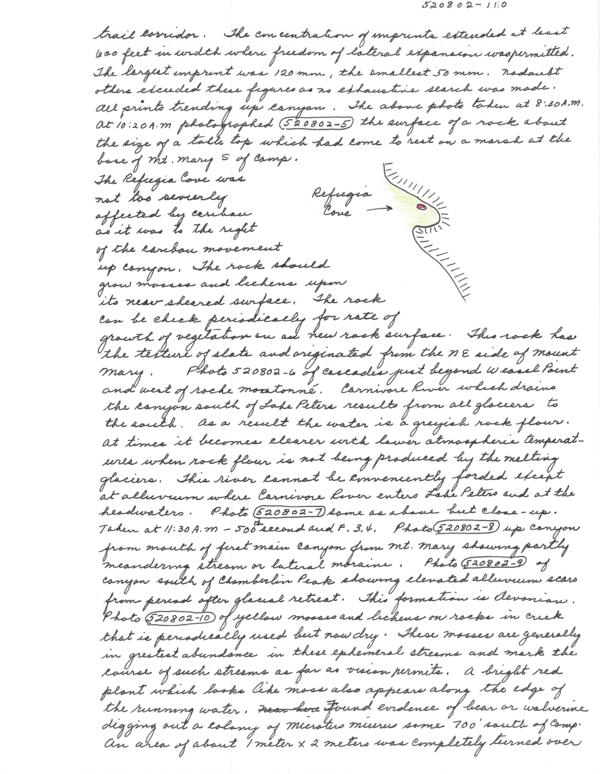 520802-110
trail corridor. The concentration of imprints extended at least
600 feet in width where freedom of lateral expansion was permitted.
The largest imprint was 120 mm, the smallest 50 mm. No doubt
others exceeded these figures as no exhaustive search was made.
All prints trending up canyon. The above photo taken at 8:20 A.M.
At 10:20 A.M photographed (520802-5) the surface of a rock about
the size of a table top which had come to rest on a marsh at the
base of Mt. Mary S of Camp.
The Refugia Cove was
not too severly
affected by caribou
as it was to the right
of the caribou movement
up canyon. The rock should
grow mosses and lichens upon
its new sheared surface. The rock
can be check periodically for rate of
growth of vegetation on an new rock surface. This rock has
the texture of slate and originated from the NE side of Mount
Mary. Photo 520802-6 of Cascades just beyond Weasel Point
and west of roche moutonné. Carnivore River which drains
the canyon south of Lake Peters results from all glaciers to
the south. As a result the water is a greyish rock flour.
At times it becomes clearer with lower atmospheric temperat-
ures when rock flour is not being produced by the melting
glaciers. This river cannot be conveniently forded except
at alluvium where Carnivore River enters Lake Peters and at the
headwaters. Photo (520802-7) same as above but close-up.
Taken at 11:30 A.M - 500th second and F. 3.4. Photo (520802-8) up canyon
from mouth of first main canyon from Mt. Mary showing partly
meandering stream or lateral moraine. Photo (520802-9) of
canyon south of Chamberlin Peak showing elevated alluvium scars
from period after glacial retreat. This formation is Devonian.
Photo (520802-10) of yellow mosses and lichens on rocks in creek
that is periodically used but now dry. These mosses are generally
in greatest abundance in these ephemeral streams and mark the
course of such streams as far as vision permits. A bright red
plant which looks like moss also appears along the edge of
the running water. Found evidence of bear or wolverine
digging out a colony of Microtus miurus some 700' south of Camp.
An area of about 1 meter x 2 meters was completely turned over
Refugia
Cove